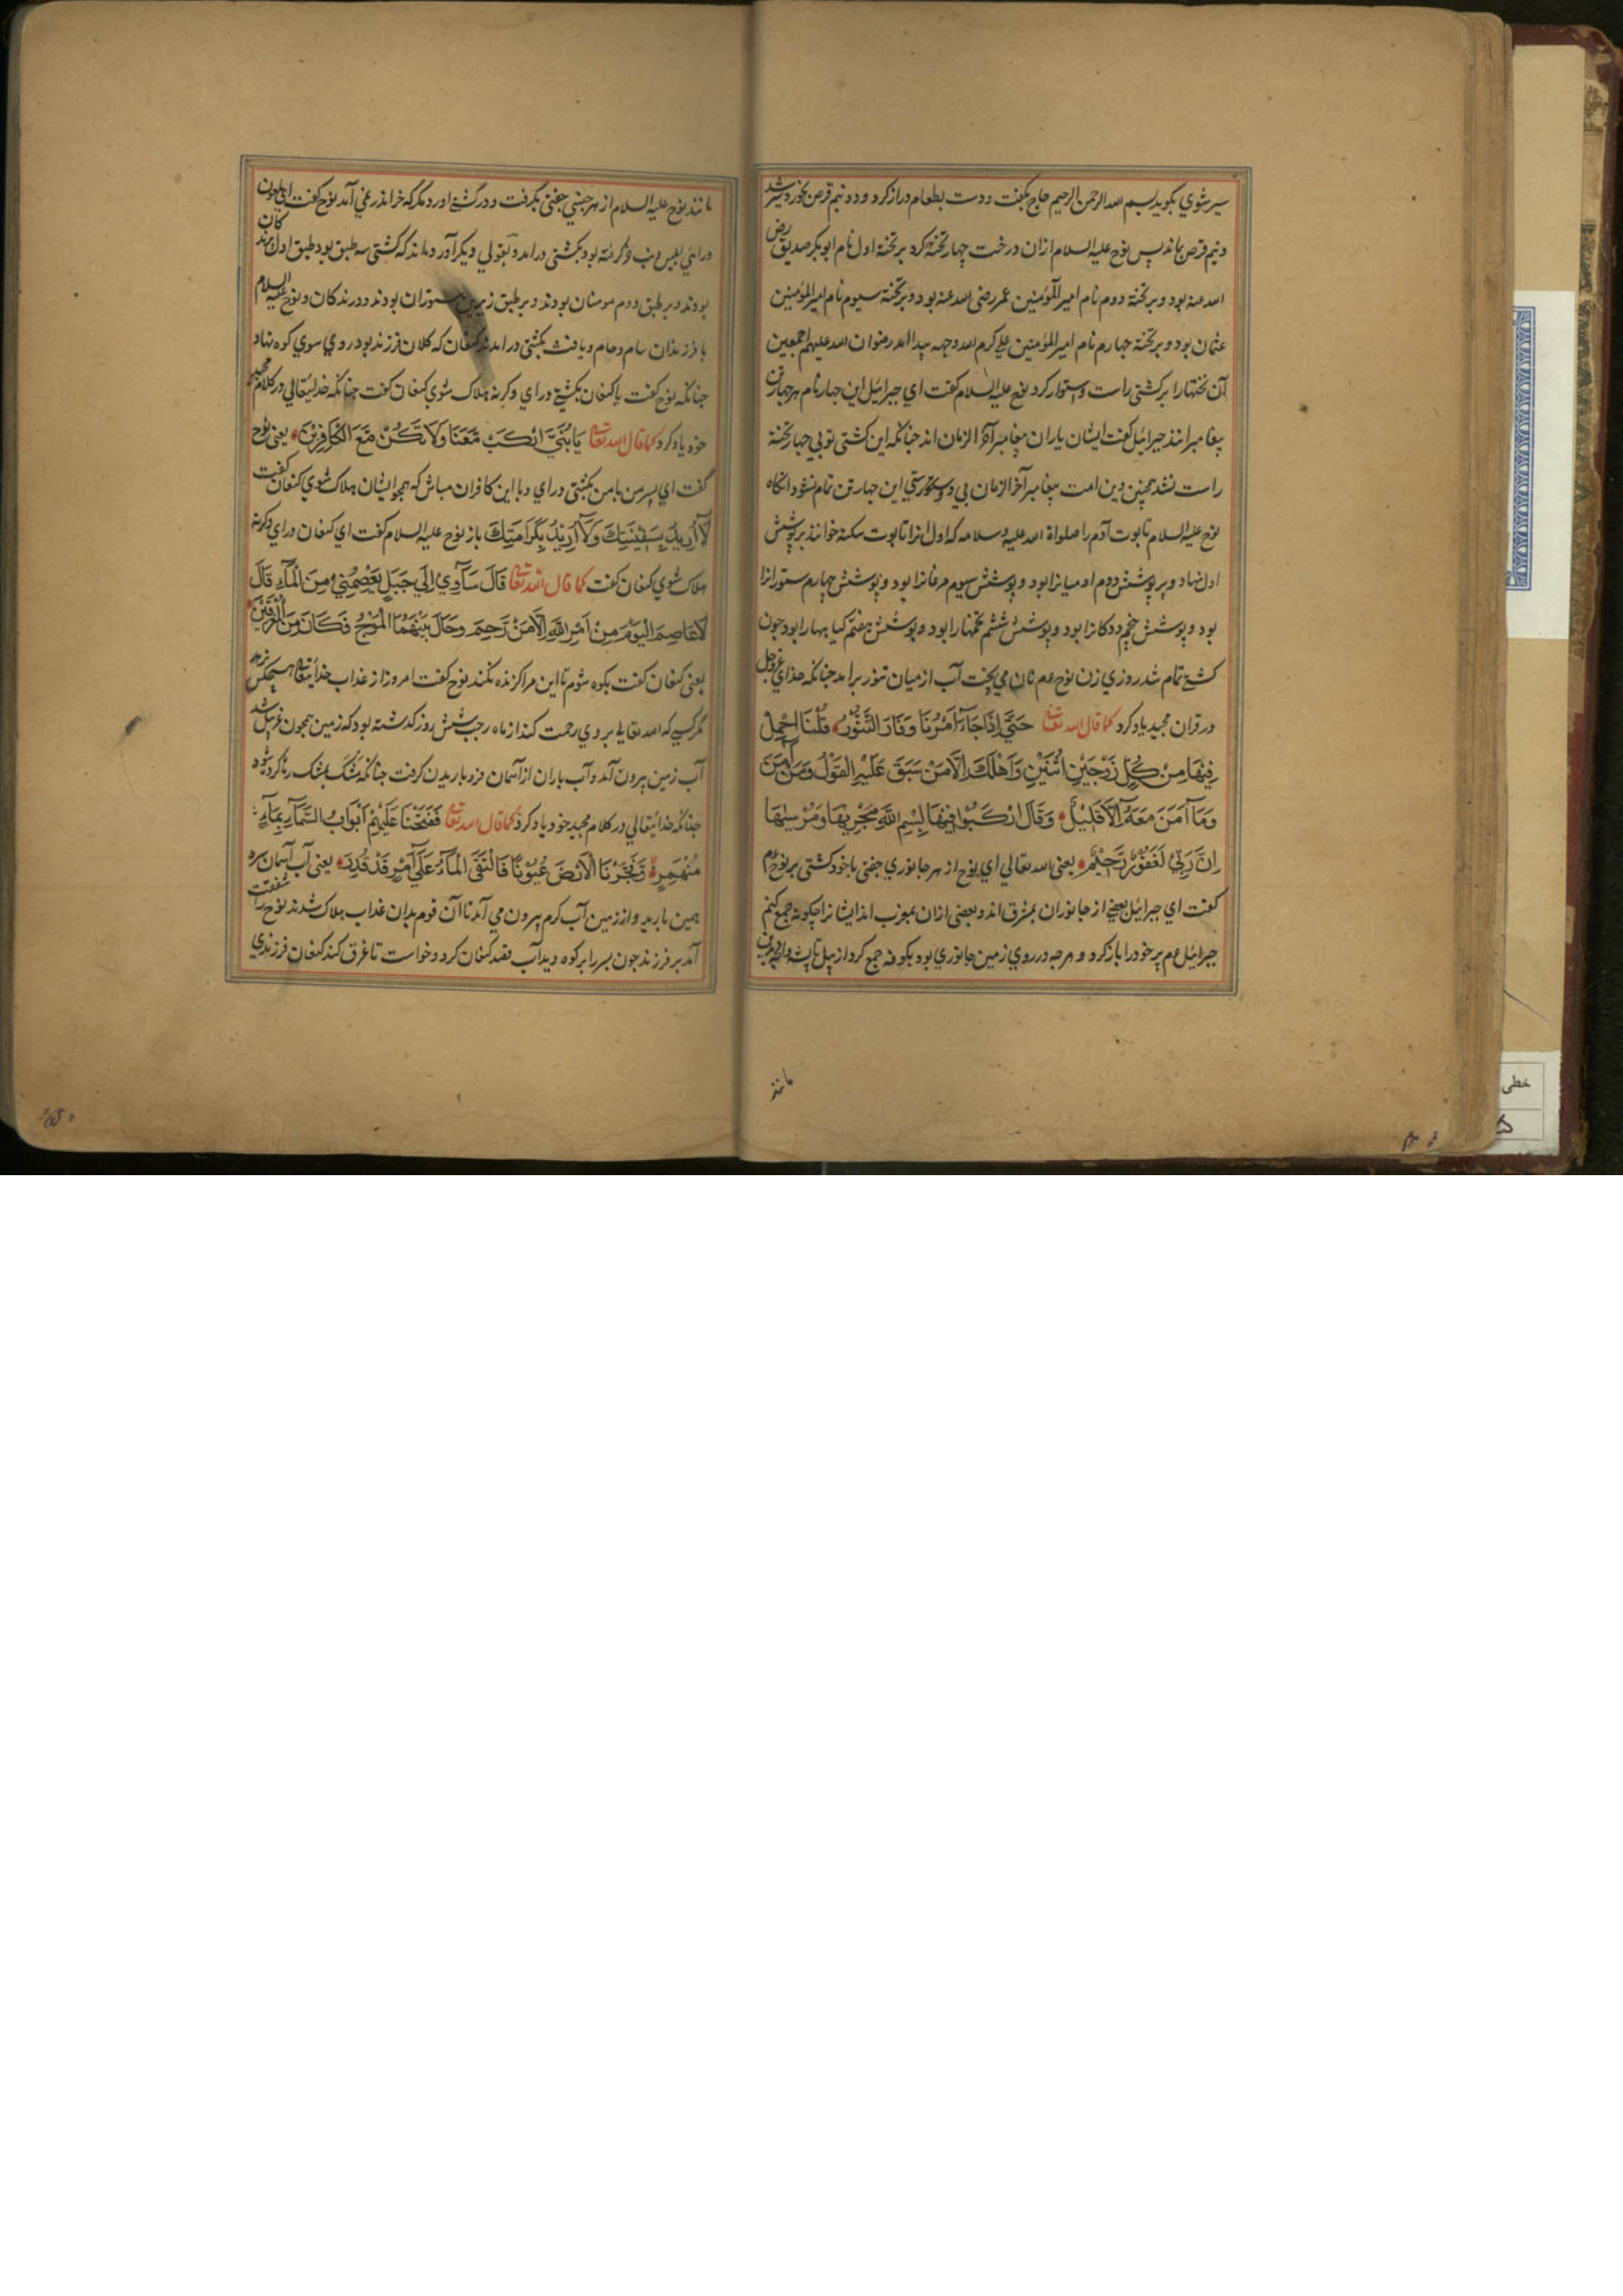 سیر شوی بکوید بسم الله الرحمن الرحیم حاج بکفت و دست بطعام دراز کرد و دو نیم قرص بخورد سیر شد
و نیم قرص بماند پس نوح علیه السلام ازان درخت چهار تخته کرد بر تختهٔ اول نام ابوبکر صدیق رض
الله عنه بود و بر تختهٔ دووم نام امیر المؤمنین عمر رضی الله عنه بود و بر تختهٔ سیوم نام امیر المؤمنین
عثمان بود و بر تختهٔ جهارم نام امیر المؤمنین علی کرم الله وجهه پیدا امد رضوان الله علیهم اجمعین
آن تختهارا بر کشتی راست و استوار کرد نوح علیه السلام کفت ای جبرائیل این جهار نام هر جهار تن
پیغامبرانند جبرائیل کفت ایشان یاران پیغامبر آخر الزمان اند جنانکه این کشتی تو بی جهار تختهٔ
راست نشد همچنین دین امت پیغامبر آخر الزمان بی دوستی این جهار تن تمام نشود انکاه
نوح علیه السلام تابوت آدم را صلواة الله علیه و سلامه که اول انرا تابوت سکنه خوانند بر پوشش
اول نهاد و بر پوشش دووم ادمیانرا بود و پوشش سیوم مرغانرا بود و پوشش چهارم ستورانرا
بود و پوشش پنجم ددکانرا بود و پوشش ششم تخمهارا بود و پوشش هفتم کیاههارا بود جون
کشتی تمام شد روزی زن نوح عم نان می پخت آب از میان تنور برامد جنانکه خدای عزوجل
در قران مجید یاد کرد کما قال الله تعالی حَتَّی اِذَا جَاءَ اَمْرُنَا وَفَارَ التَّنُّوْرُ قُلْنَا احْمِلْ
فِیْهَا مِنْ کُلٍّ زَوْجَیْنِ اثْنَیْنِ وَاَهْلَکَ اِلَّا مَنْ سَبَقَ عَلَیْهِ الْقَوْلُ وَمَنْ اٰمَنَ
وَمَا اٰمَنَ مَعَهُ اِلَّا قَلِیْلٌ وَقَالَ ارْکَبُوْا فِیْهَا بِسْمِ اللّٰهِ مَجْرٖیهَا وَمُرْسٰیهَا
اِنَّ رَبِّی لَغَفُوْرٌ رَّحِیْمٌ یعنی الله تعالی ای نوح از هر جانوری جفتی با خود کشتی بر نوح عم
کفت ای جبرایئل بعضی از جانوران بمشرق اند و بعضی ازان بمغرب اند ایشانرا چکونه جمع کنم
جبرائیل عم پر خودرا باز کرد و هر جه در روی زمین جانوری بود بکوفه جمع کرد از پیل تا پشه
مانند
مانند نوح علیه السلام از هر جنسی جفتی بکرفت و در کشتی اورد مکر که خر اندر نمی آمد نوح کفت ای ملعون
درای ابلیس دنب خر کرفته بود بکشتی درامد و بقولی دیکر آورده اند که کشتی سه طبق بود طبق اول
بودند و بر طبق دووم مومنان بودند و بر طبق زیرین ستوران بودند و درندکان و نوح علیه السلام
با فرزندان سام و حام و یافث بکشتی درامدند کنعان که کلان فرزند بود روی سوی کوه نهاد
جنانکه نوح کفت یا کنعان بکشتی درای و کرنه هلاک شوی کنعان کفت جنانکه خدایتعالی در کلام مجید
خود یاد کرد کما قال الله تعالی یَا بُنَیَّ ارْکَبْ مَّعَنَا وَلَا تَکُنْ مَّعَ الْکَافِرِیْنَ یعنی نوح
کفت ای پسر من با من بکشتی درای و با این کافران مباش که همجو ایشان هلاک شوی کنعان کفت
لَا اُرِیْدُ بِسَفِیْنَتِکَ وَلَا اُرِیْدُ بِکَرَامَتِکَ باز نوح علیه السلام کفت ای کنعان درای و کرنه
هلاک شوی کنعان کفت کما قال الله تعالی قَالَ سَاٰوِیْ اِلٰی جَبَلٍ یَعْصِمُنِیْ مِنَ الْمَآءِ قَالَ
لَا عَاصِمَ الْیَوْمَ مِنْ اَمْرِ اللّٰهِ اِلَّا مَنْ رَحِمَ وَحَالَ بَیْنَهُمَا الْمَوْجُ فَکَانَ مِنَ الْمُغْرَقِیْنَ
یعنی کنعان کفت بکوه شوم تا این مرا کزنده نکند نوح کفت امروز از عذاب خدایتعالی هیچکس نرهد
مکر کسی که الله تعالی بر وی رحمت کند از ماه رجب شش روز کذشته بود که زمین همجون غربیل شد
آب زمین بیرون آمد و آب باران از آسمان فرو باریدن کرفت جنانکه مشک بمشک رها کرد شود
جنانکه خدایتعالی در کلام مجید خود یاد کرد کما قال الله تعالی فَفَتَحْنَا عَلَیْهِمْ اَبْوَابَ السَّمَآءِ بِمَآءٍ
مُنْهَمِرٍ وَفَجَّرْنَا الْاَرْضَ عُیُوْنًا فَالْتَقَی الْمَآءُ عَلٰی اَمْرٍ قَدْ قُدِرَ یعنی آب آسمان سرد
همین بارید و از زمین آب کرم بیرون می آمد تا آن قوم بدان عذاب هلاک شدند نوح را شفقت
آمد بر فرزند جون پسر را بر کوه دید آب قصد کنعان کرد و خواست تا غرق کند کنعان فرزندی
خطی